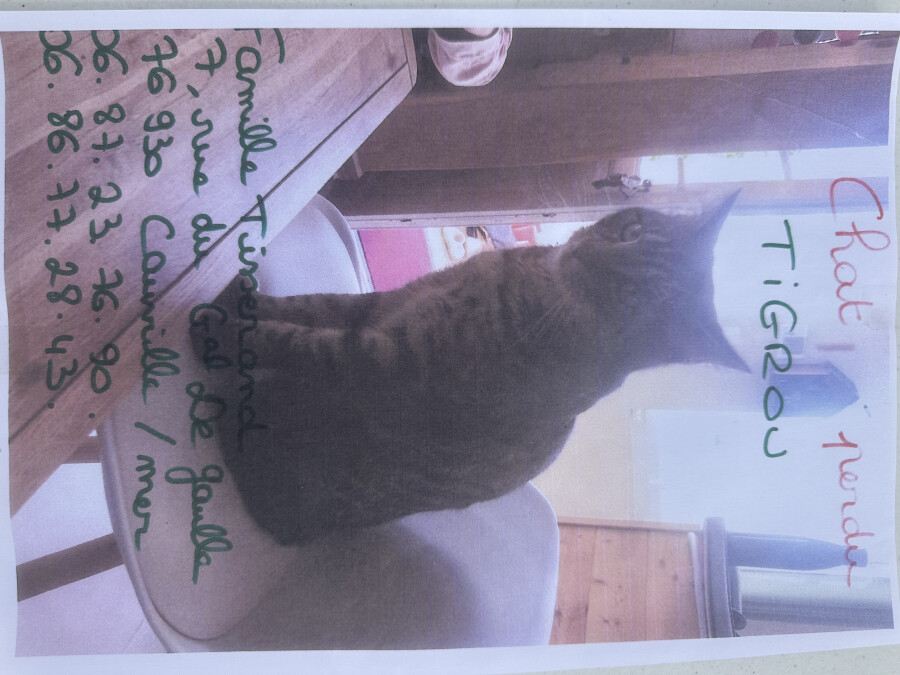 Chat perdu
TiGROU
Famille Tisserand
7, rue du Gal de gaulle
76 930 Cauville / mer
06. 87. 23 76. 90.
06. 86. 77. 28. 43.